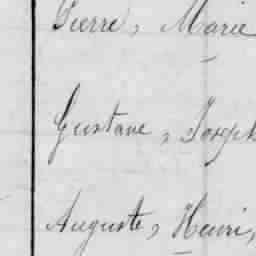 Pierre, Marie
Gustave, Joseph
Auguste, Henri,